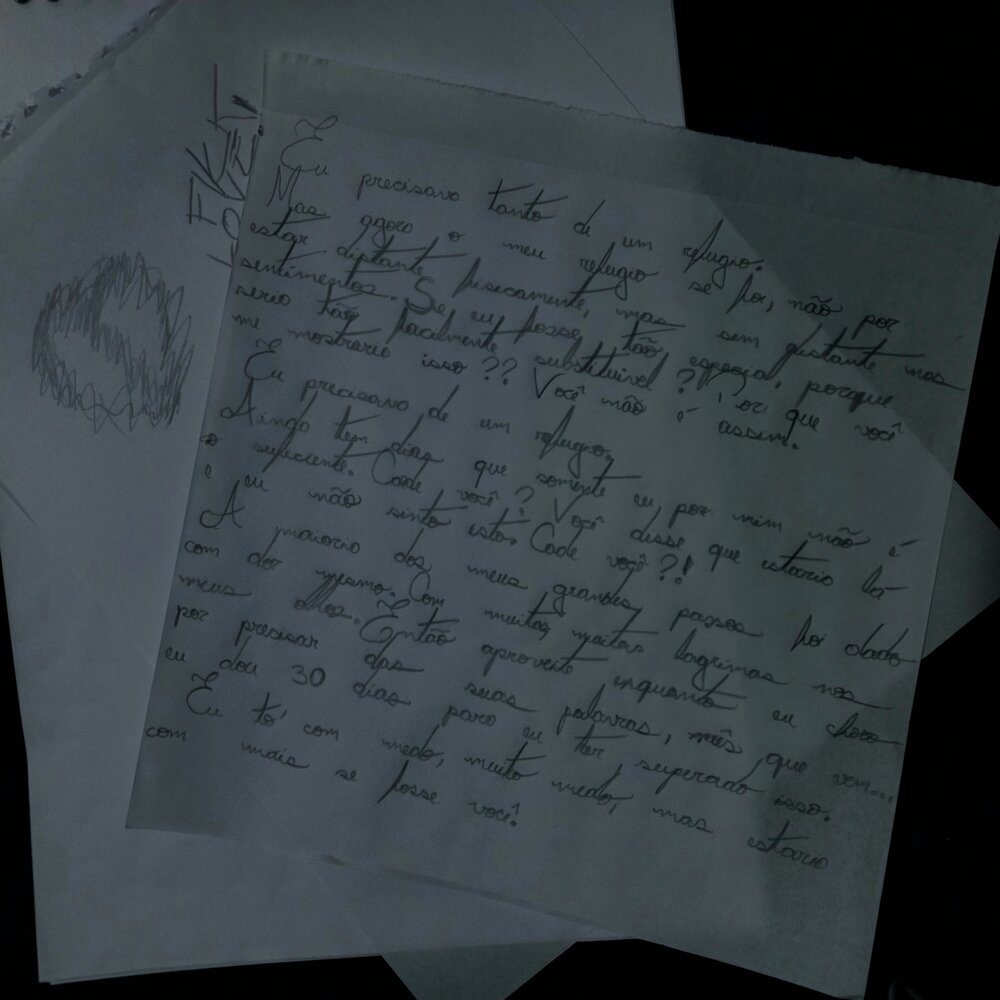 Eu precisava tanto de um refugio.
Mas agora o meu refugio se foi, não por
estar distante fisicamente, mas sem distante nos
sentimentos. Se eu fosse tão especial, porque
seria tão facilmente substituivel? Por que você
me mostraria isso?? Você não é assim.
Eu precisava de um refugio.
Ainda tem dias que somente eu, por mim não é
o suficiente. Cade você? Você disse que estaria lá
e eu não sinto isto. Cade você?!
A maioria dos meus grandes passos foi dado
com dor mesmo. Com muitas, muitas lagrimas nos
meus olhos. Então aproveite enquanto eu choro
por precisar das suas palavras, mês que vem...
eu dou 30 dias para eu ter superado isso.
Eu tô com medo, muito medo, mas estaria
com mais se fosse você!